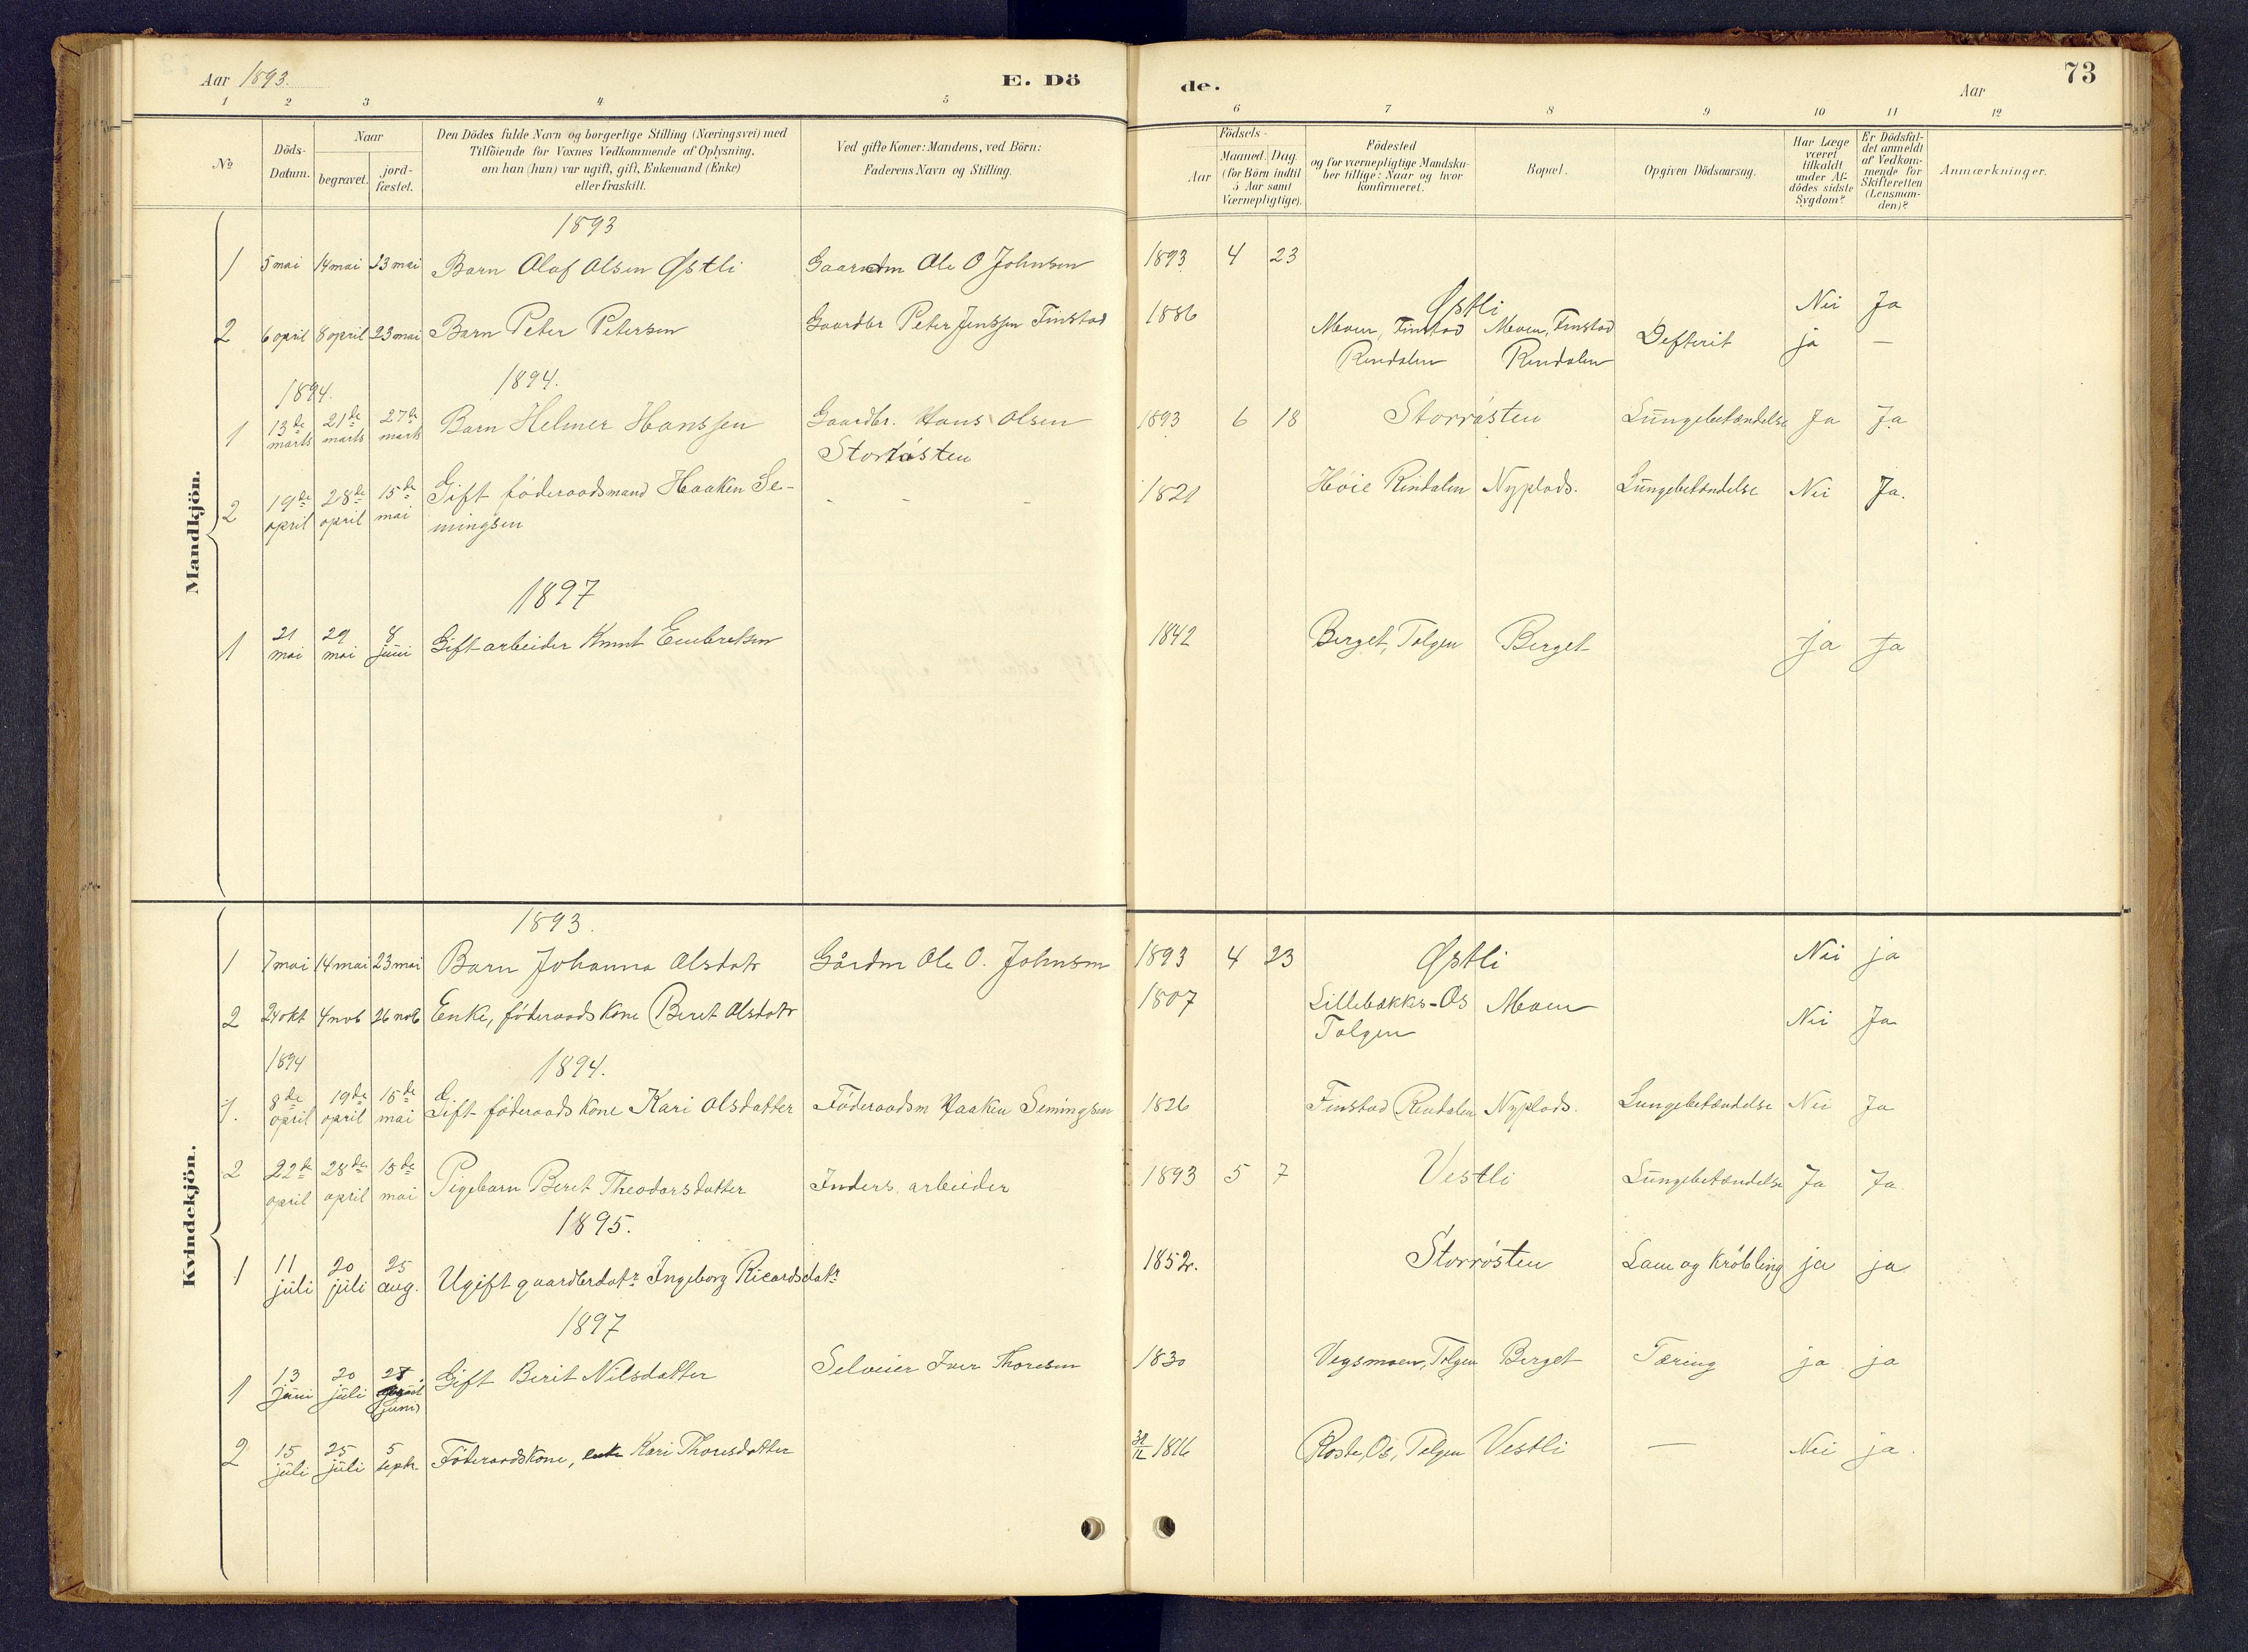 Aar 1893.
E. Dö
de.
Aar
73
1 2 3 4 5 6 7 8 9 10 11 12
No
Döds-
Datum.
Naar
begravet.
jord-
fæstet.
Den Dödes fulde Navn og borgerlige Stilling (Næringsvei) med
Tilföiende for Voxnes Vedkommende af Oplysning.
om han (hun) var ugift, gift, Enkemand (Enke)
eller fraskilt.
Ved gifte Koner: Mandens, ved Börn:
Faderens Navn og Stilling.
Födsels-
Aar
Maaned. Dag.
(for Börn indtil
5 Aar samt
Værnepligtige).
Födested
og for værnepligtige Mandska-
ber tillige: Naar og hvor
konfirmeret.
Bopæl.
Opgiven Dödsaarsag.
Har Læge
været
tilkaldt
under Af-
dödes sidste
Sygdom?
Er Dödsfal-
det anmeldt
af Vedkom-
mende for
Skifteretten
(Lensman-
den)?
Anmærkninger.
Mandkjön.
1893
1 5 mai 14 mai 23 mai Barn Olaf Olsen Østli Gaardm Ole O Johnsen 1893 4 23 Østli Nei Ja
2 6 april 8 april 23 mai Barn Peter Petersen Gaardbr Peter Jenssen Finstad 1886 Moen, Finstad Moen, Finstad Defterit ja —
Rendalen Rendalen
1894. 1894.
1 13de 21de 27de Barn Helmer Hanssen Gaardbr. Hans Olsen 1893 6 18 Storrøsten Lungebetændelse Ja Ja
marts marts marts Storrøsten
2 19de 28de 15de Gift föderaadsmand Haaken Se- - - - 1821 Höie Rindalen Nyplads. Lungebetændelse Nei Ja.
april april mai mingsen
1897
1 21 29 8 Gift arbeider Knut Embretsen 1842 Berget, Tolgen Berget Ja Ja
mai mai juni
Kvindekjön.
1893.
1 7 mai 14 mai 23 mai Barn Johanna Olsdotr Gårdm Ole O. Johnsen 1893 4 23 Østli Nei ja
2 24 okt 4 nob 26 nob Enke, föderaadskone Beret Olsdotr 1807 Lillebækkes-Os Moen Nei Ja
Tolgen
1894 1894.
1. 8de 19de 15de Gift föderaads kone Kari Olsdatter Föderaadsm Haaken Semingsen 1826 Finstad Rendalen Nyplads. Lungebetændelse Nei Ja
april april mai
2 22de 28de 15de Pigebarn Beret Theodorsdatter Inders. arbeider 1893 5 7 Vestli Lungebetændelse Ja Ja.
april april mai
1895.
1 11 20 25 Ugift gaardbrdatr Ingeborg Ricardsdatr 1852. Storrøsten Lam og Kröbling ja ja
juli juli aug.
1897
1 13 20 28 Gift Berit Nilsdatter Selveier Iver Thoresen 1830 Vegsmoen, Tolgen Berget Tæring ja ja
juni juli
(juni)
2 15 25 5 Föderaadskone, enke Kari Thoresdatter 31/12 1816 Røste, Os, Tolgen Vestli — Nei ja.
juli juli septr.